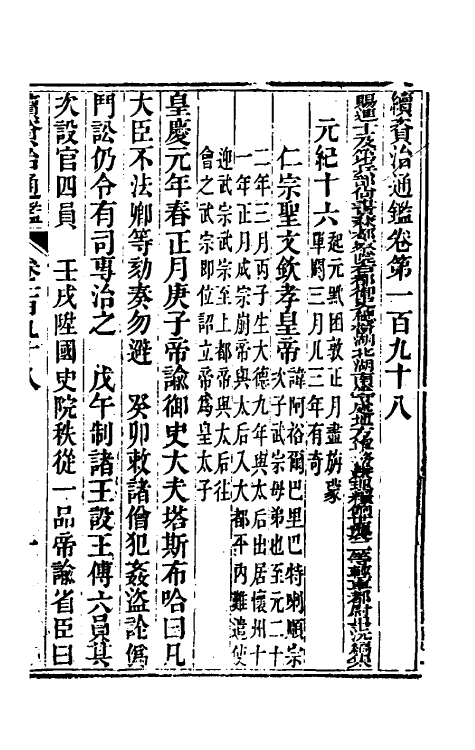 續資治通鑑卷第一百九十八
賜進士及第兵部尚書兼都察院右都御史總督湖北湖南等處地方軍務兼理糧餉世襲二等輕車都尉畢沅編集
元紀十六
起元黓困敦正月盡旃蒙
單閼三月凡三年有奇
仁宗聖文欽孝皇帝
諱阿裕爾巴里巴特喇順宗
次子武宗母弟也至元二十
二年三月丙子生大德九年與太后出居懷州十
一年正月成宗崩帝與太后入大都平內難遣使
迎武宗武宗至上都帝與太后往
會之武宗即位詔立帝爲皇太子
皇慶元年春正月庚子帝諭御史大夫塔斯布哈曰凡
大臣不法卿等劾奏勿避 癸卯敕諸僧犯姦盜詮僞
鬥訟仍令有司專治之 戊午制諸王設王傅六員其
次設官四員 壬戌陞國史院秩從一品帝諭省臣曰
續資治通鑑 卷一百九十八 一